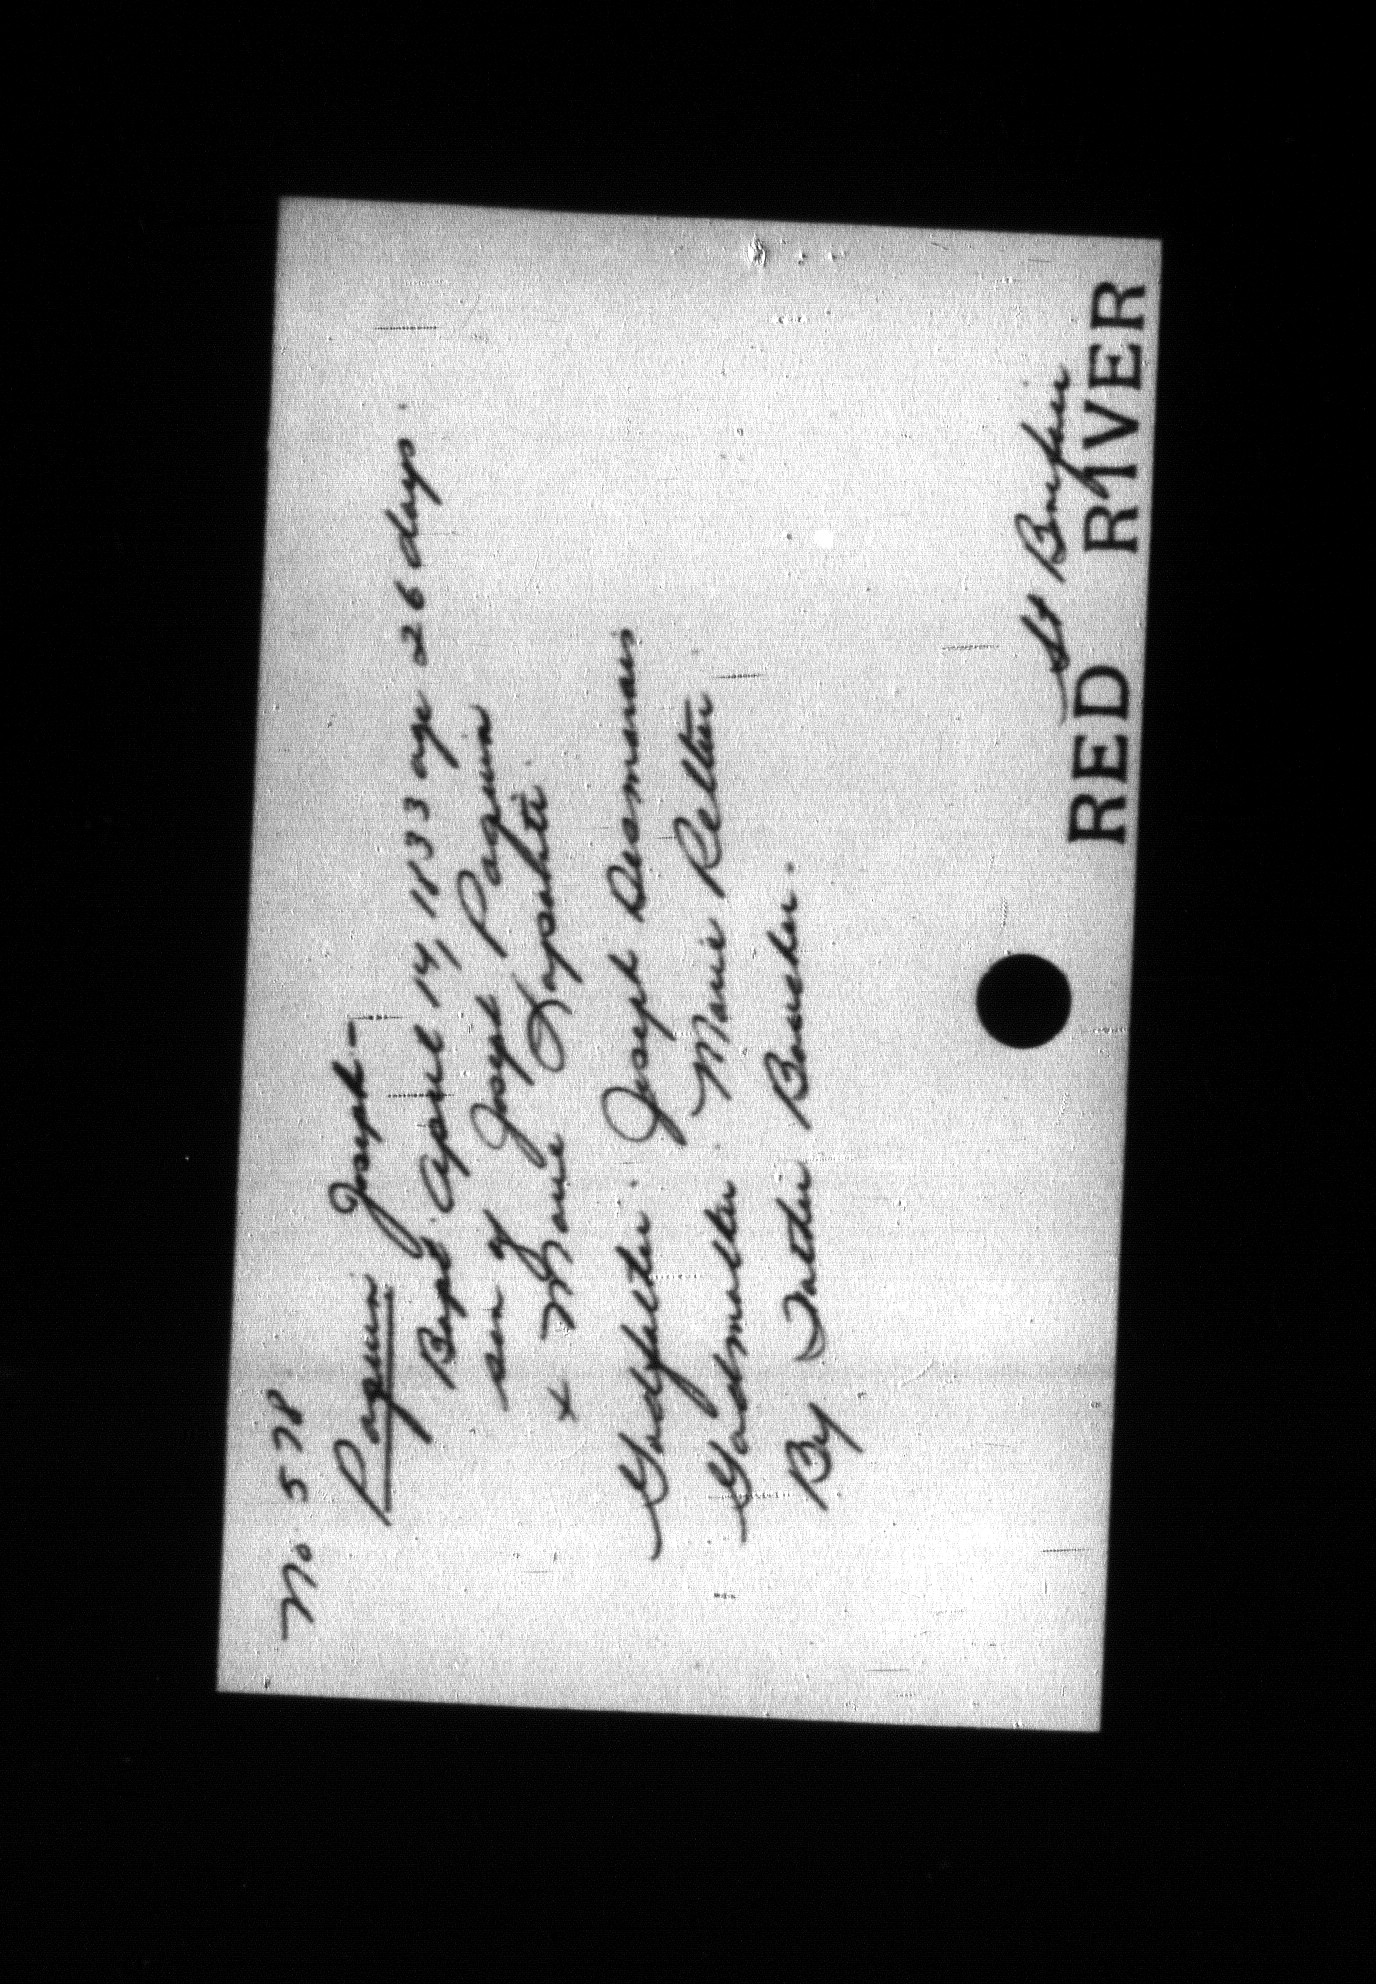 No. 578
Paquin Joseph -
Bapt. April 14, 1833 age 26 days.
son of Joseph Paquin
+ Marie Lapahte.
Godfather. Joseph Desmarais
Godmother. Marie Pelltier
By Father Boucher.
St Boniface
RED RIVER